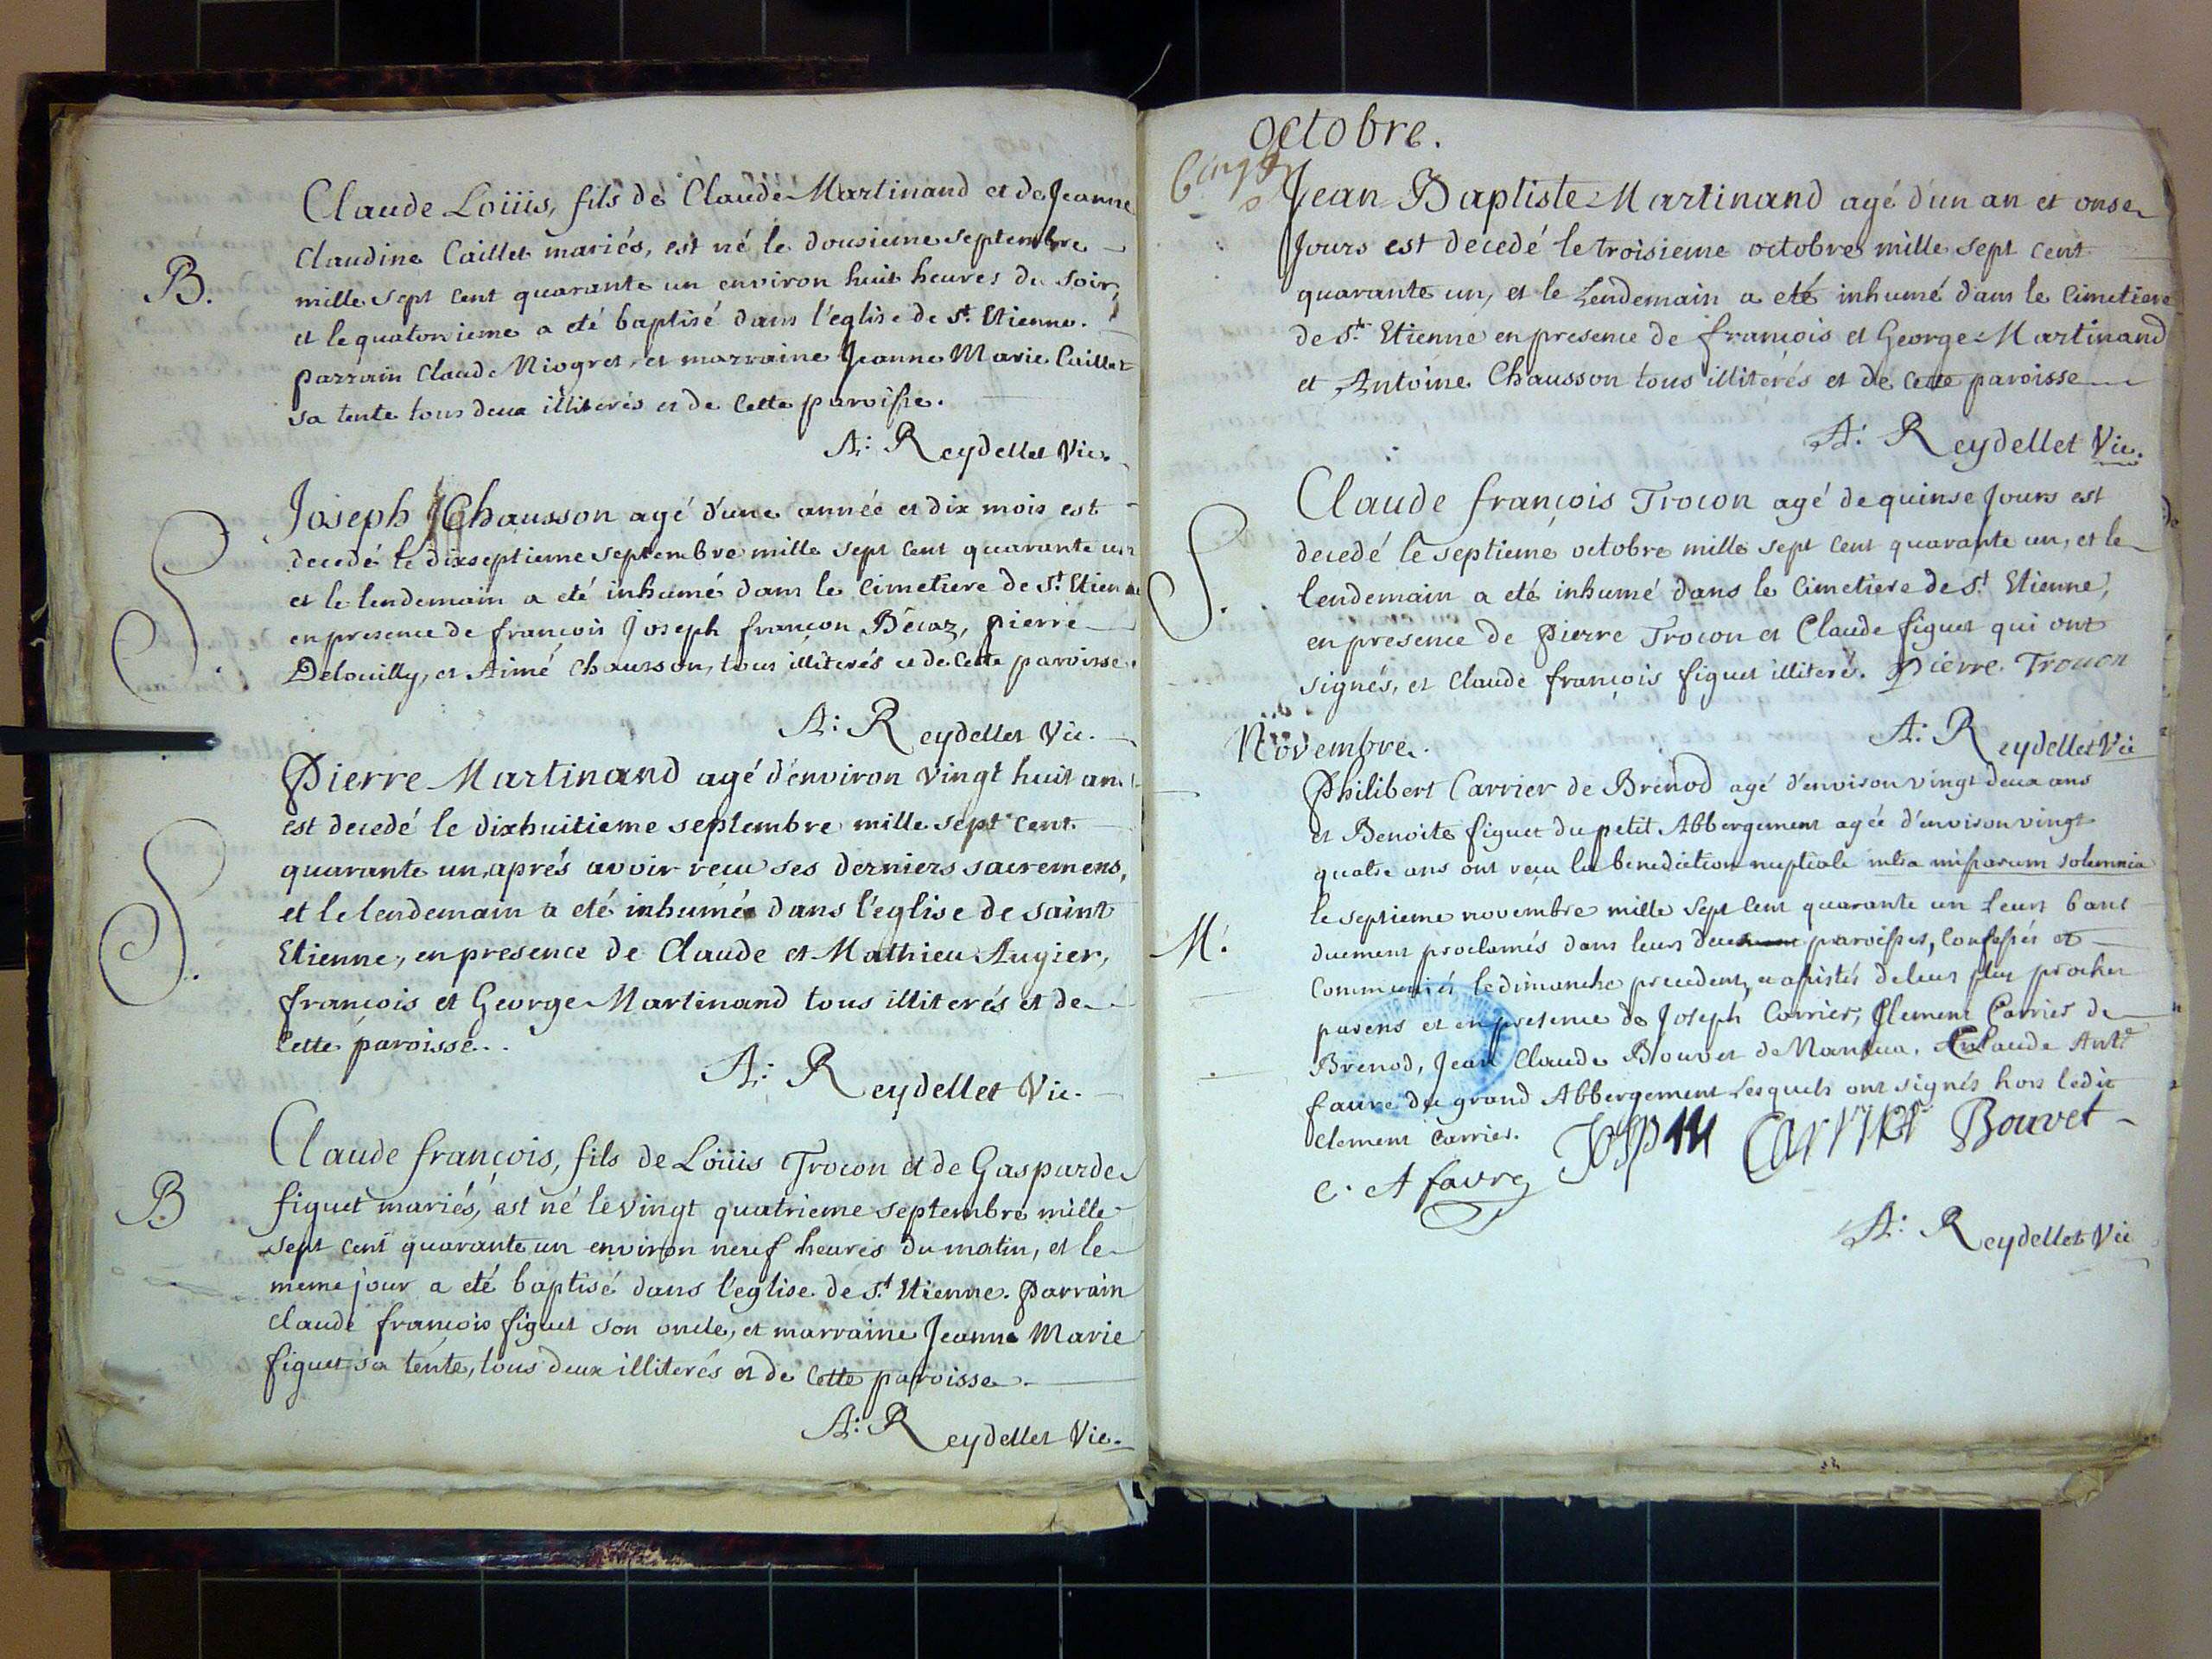 Claude Loüis, fils de Claude Martinand et de Jeanne
Claudine Caillet mariés, est né le dousieme septembre
B.
mille sept cent quarante un environ huit heures du soir,
et le quatorsieme a eté baptisé dans l'eglise de St. Etienne.
parrain Claude Niogret, et marraine Jeanne Marie Caillet
sa tente tous deux illiterés et de cette paroisse.
A: Reydellet Vic.
Joseph Chausson agé d'une année et dix mois est
S.
decedé le dixseptieme septembre mille sept cent quarante un
et le lendemain a eté inhumé dans le cimetiere de St. Etienne
en presence de françois Joseph françon Bécaz, pierre
Delouilly, et Aimé Chausson, tous illiterés et de cette paroisse.
A: Reydellet Vic.
Pierre Martinand agé d'environ vingt huit ans
est decedé le dixhuitieme septembre mille sept cent
S.
quarante un, aprés avoir reçu ses derniers sacremens,
et le lendemain a eté inhumé dans l'eglise de saint
Etienne, en presence de Claude et Mathieu Augier,
françois et George Martinand tous illiterés et de
cette paroisse.
A: Reydellet Vic.
Claude françois, fils de Loüis Trocon et de Gasparde
B
figuet mariés, est né le vingt quatrieme septembre mille
sept cent quarante un environ neuf heures du matin, et le
meme jour a eté baptisé dans l'eglise de St. Etienne. parrain
claude françois figuet son oncle, et marraine Jeanne Marie
figuet sa tente, tous deux illiterés et de cette paroisse.
A: Reydellet Vic.
octobre.
Jean Baptiste Martinand agé d'un an et onse
Jours est decedé le troisieme octobre mille sept cent
quarante un, et le Lendemain a eté inhumé dans le cimetiere
de St. Etienne en presence de françois et George Martinand
et Antoine Chausson tous illiterés et de cette paroisse
A: Reydellet Vic.
Claude françois Trocon agé de quinse Jours est
S.
decedé le septieme octobre mille sept cent quarante un, et le
lendemain a eté inhumé dans le cimetiere de St. Etienne,
en presence de Pierre Trocon et Claude figuet qui ont
signés, et Claude françois figuet illiteré. Pierre Trocon
Novembre.
A: Reydellet Vic
Philibert Carrier de Brénod agé d'environ vingt deux ans
et Benoite figuet du petit Abbergement agée d'environ vingt
quatre ans ont reçu la benediction nuptiale intra missarum solemnia
M.
le septieme novembre mille sept cent quarante un leurs bans
duement proclamés dans leurs deux paroisses, confessés et
communiés le dimanche precedent, et assistés de leurs plus proches
parens et en presence de Joseph Carrier, Clement Carrier de
Brenod, Jean Claude Bouvet de Nantua, Claude Ante.
favre du grand Abbergement Lesquels ont signés hors ledit
Clement Carrier.
Josph Carrier Bouvet
C. A favre
A: Reydellet Vic